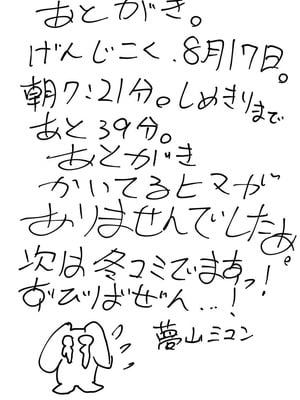 あとがき。
げんじこく、8月17日。
朝7:21分。しめきりまで
あと39分。
あとがき
かいてるヒマが
ありませんでしたぁ。
次は冬コミでまぁっ!
ずびばぜん…!
夢山ミコン